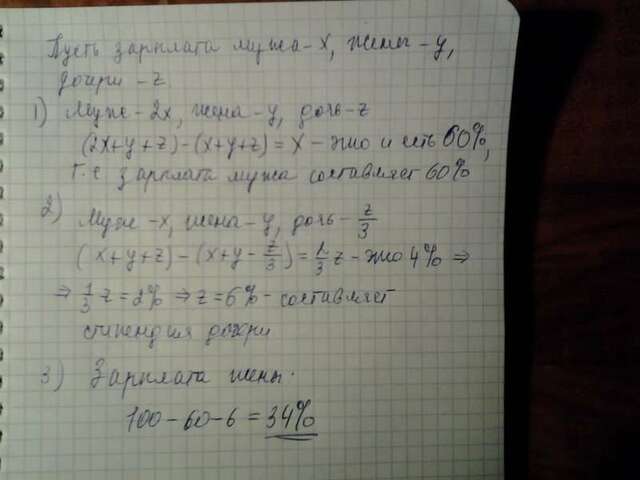 Пусть зарплата мужа - x, жены - y,
дочери - z
1) Муж - 2x, жена - y, дочь - z
(2x+y+z)-(x+y+z) = x - это и есть 60%,
т.е зарплата мужа составляет 60%
2) Муж - x, жена - y, дочь - z/3
(x+y+z)-(x+y-z/3) = 2/3 z - это 4% ⇒
⇒ 1/3 z = 2% ⇒ z = 6% - составляет
стипендия дочери
3) Зарплата жены.
100-60-6 = 34%